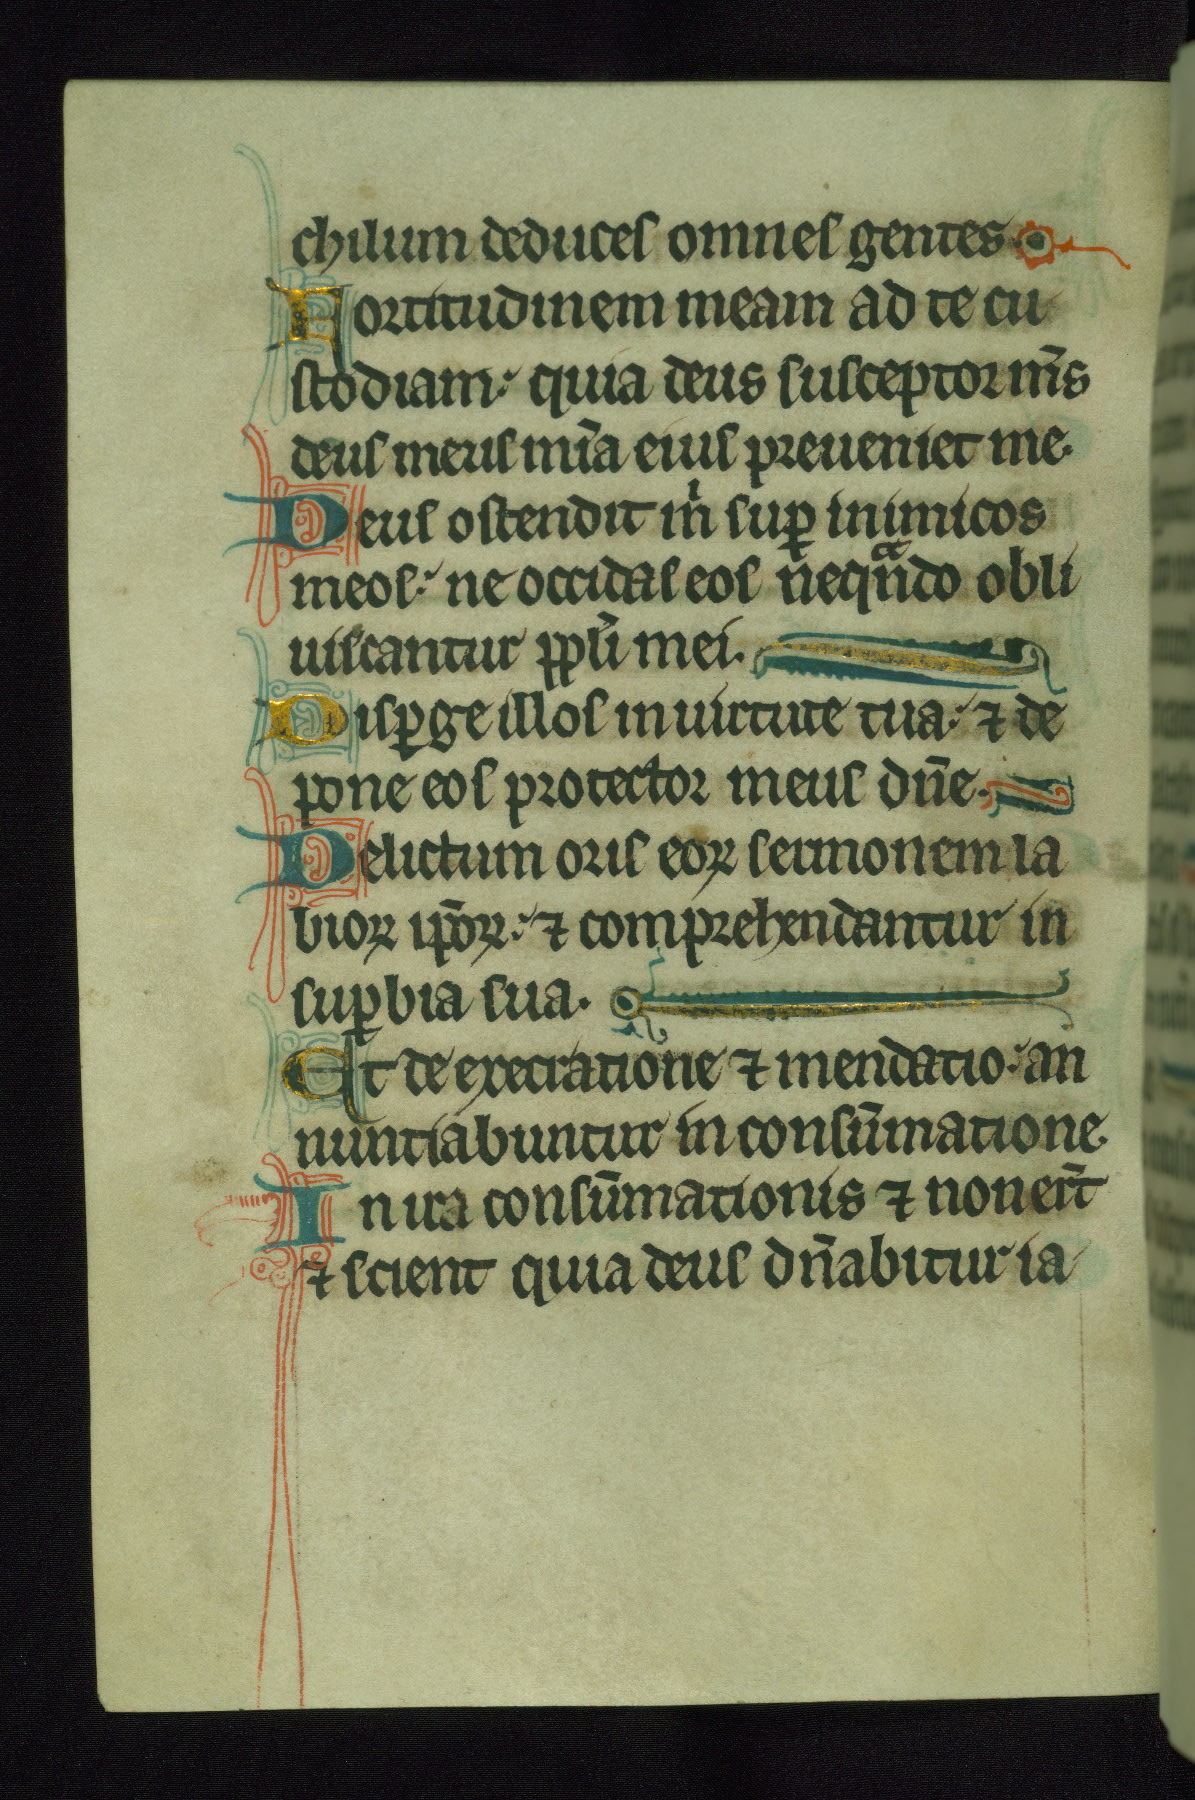 chilum deduces omnes gentes.
Fortitudinem meam ad te cu
stodiam: quia deus susceptor m̅s
deus meus mi̅a eius preueniet me.
Deus ostendit m̍ sup̱ inimicos
meos: ne occidas eos neqn̅do obli
uiscantur ppl̅i mei.
Disp̱ge illos in uirtute tua: ⁊ de
pone eos protector meus dn̅e.
Delictum oris eoꝝ sermonem la
bioꝝ ip̅oꝝ: ⁊ comprehendantur in
sup̱bia sua.
Et de execratione ⁊ mendatio: an
nuntiabuntur in consu̅matione.
In ira consu̅mationis ⁊ non er̅t
⁊ scient quia deus dn̅abitur ia